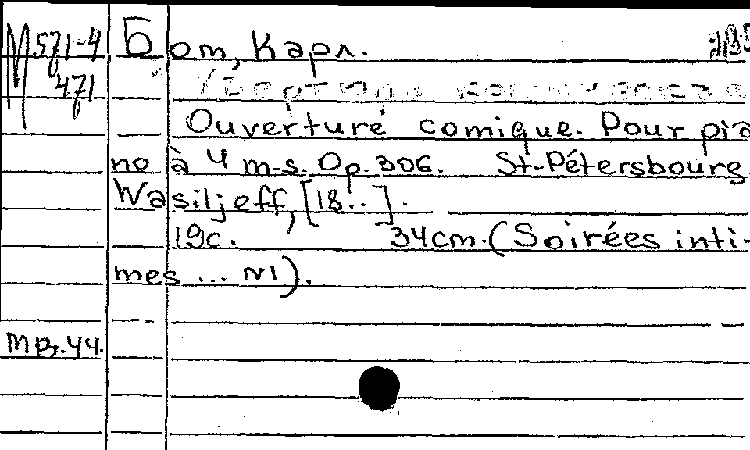 М 571-4
471
Бом, Карл.
Ouverturé comique. Pour pia
no à 4 m-s. Op. 306. St-Pétersbourg
Wasiljeff, [18..].
19с. 34cm. (Soirées inti-
mes ... N1).